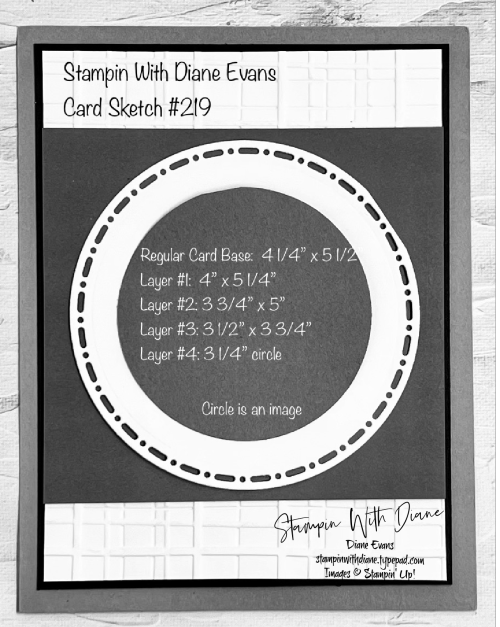 Stampin With Diane Evans
Card Sketch #219
Regular Card Base: 4 1/4" x 5 1/2
Layer #1: 4" x 5 1/4"
Layer #2: 3 3/4" x 5"
Layer #3: 3 1/2" x 3 3/4"
Layer #4: 3 1/4" circle
Circle is an image
Stampin With Diane
Diane Evans
stampinwithdiane.typepad.com
Images © Stampin' Up!